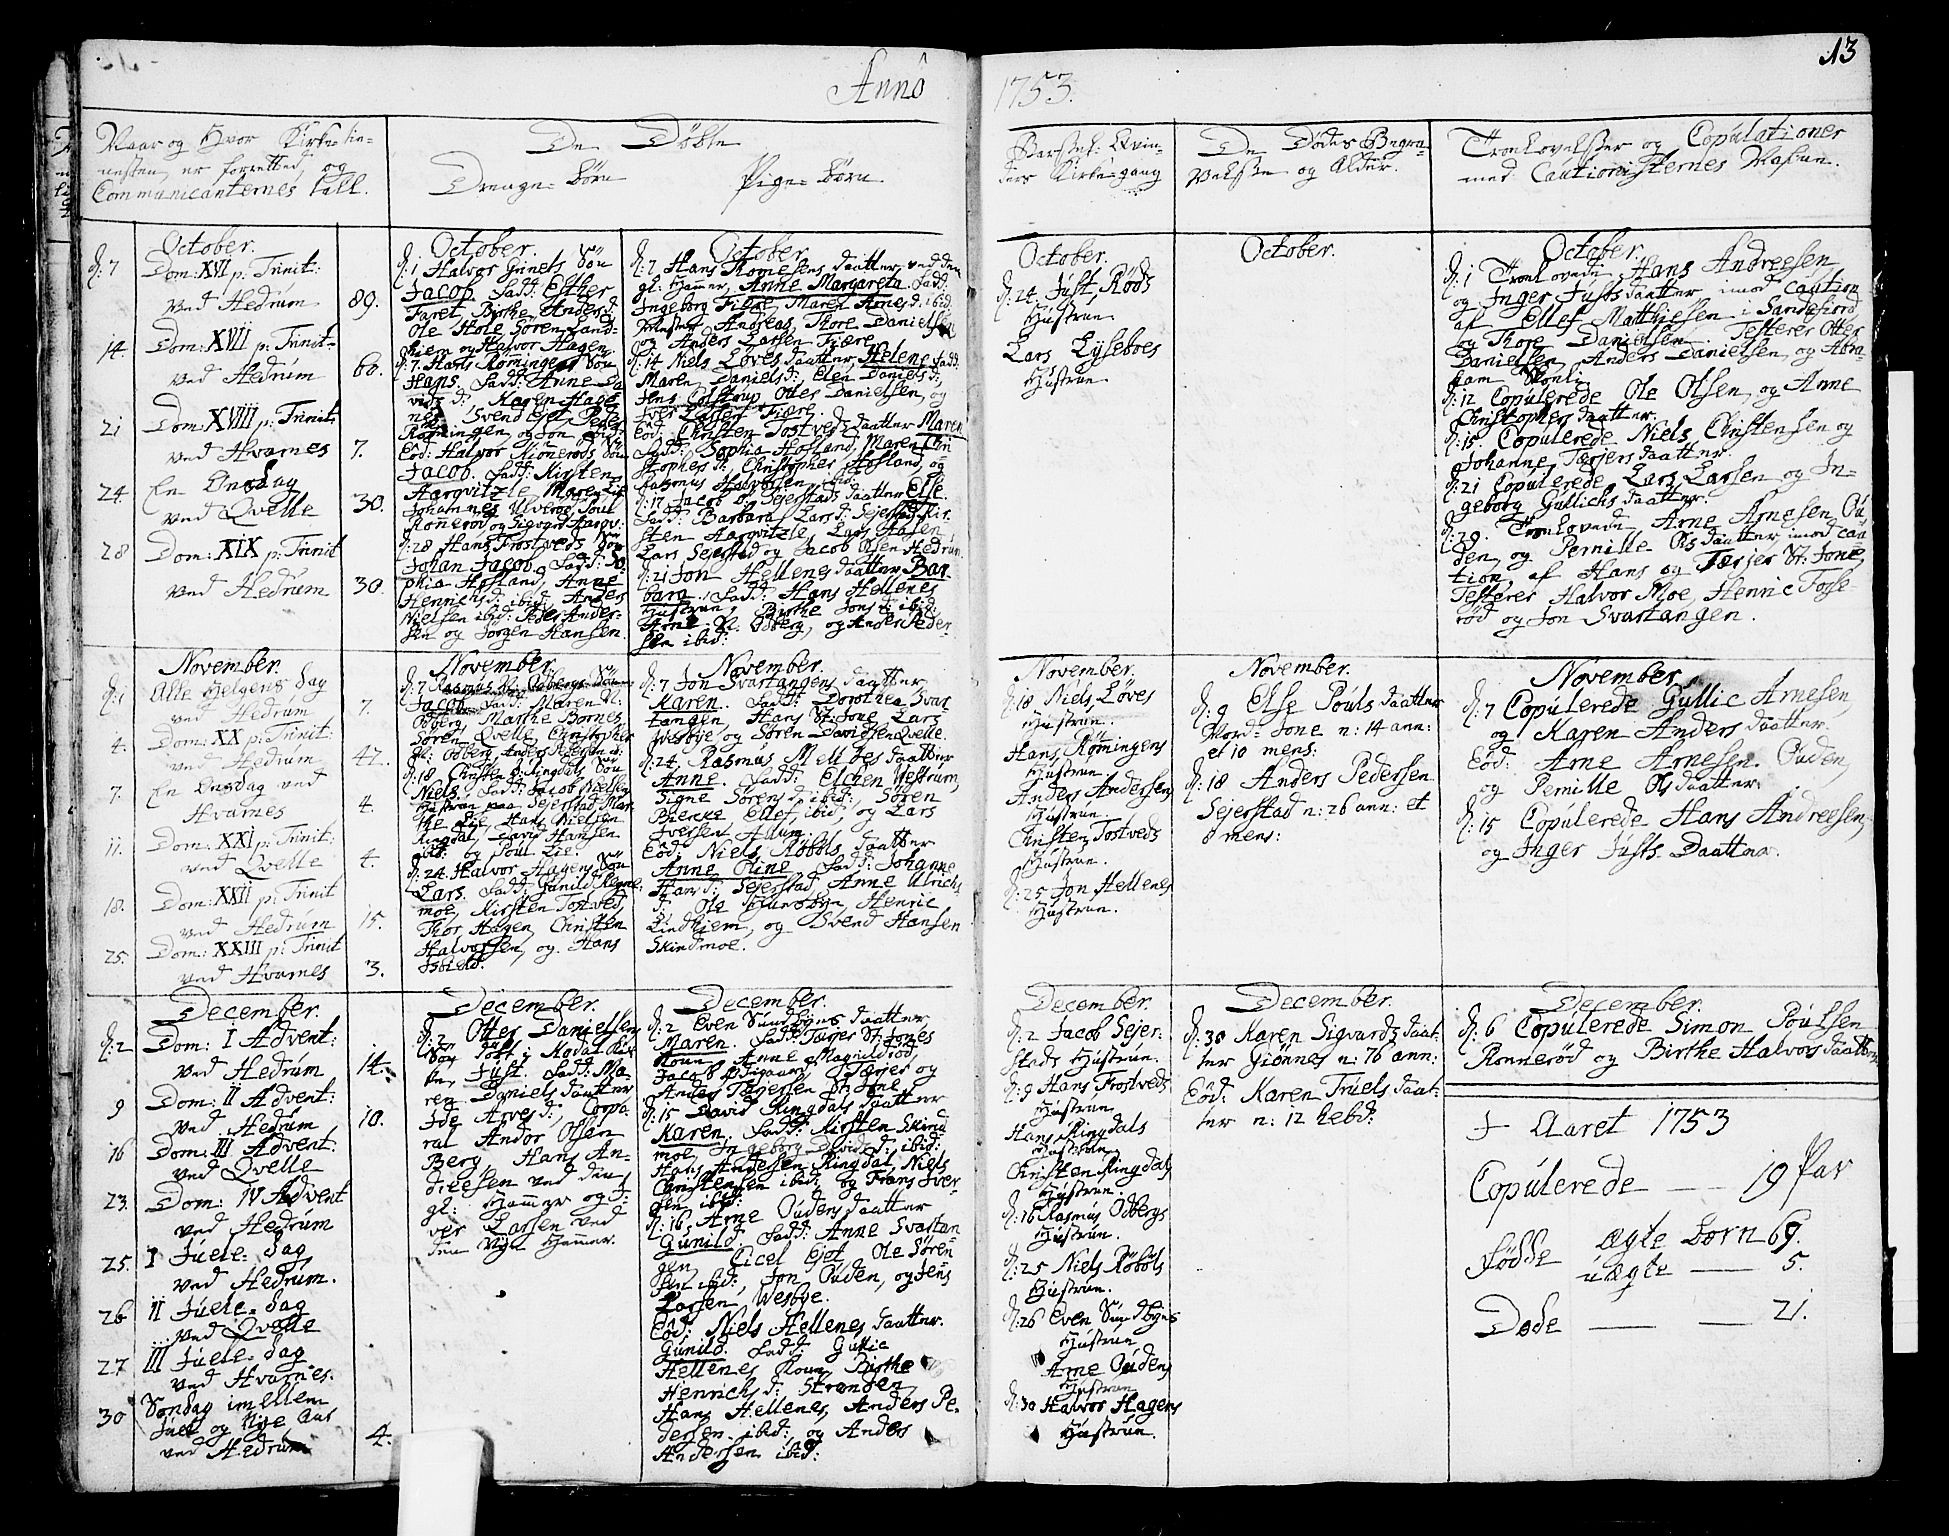 Anno
1753.
13
Naar og Hvor Kirke-tie-
nesten er forrettet, og
Communicanternes tall.
De Döbte
Drenge-börn
Pige-börn
Barsel: Kvin-
ders Kirke-gang
De Dödes Begra-
velse og Alder.
Trolovelser og Copulationer
med Cautionisternes Nafne.
October.
d: 7 Dom: XVI p: Trinit:
ved Hedrum 89.
14. Dom: XVII p: Trinit-
ved Hedrum 60.
21 Dom: XVIII p: Trinit
ved Hvarnes 7.
24. En Onsdag
ved Qvelle 30.
28 Dom: XIX p: Trinit
ved Hedrum 30.
October.
d: 1 Halvor Gunets Sön
Jacob. Fadd: Esther
Faret, Birthe Andersd:
Ole Hole Sören Land-
hiem og Halvor Hagen
d: 7. Hans Römingens Sön
Hans. Fadd: Anne Da
vids d: Karen Hage
nes Svend Ejet, Peder
Römingen, og Jon
Eod: Halvor Kioneröds Sön
Jacob. Fadd: Kirsten
Aargvitzle, Maren Lie
Johannes Ulveröd, Poul
Ronerod og Sigvard Aargv:
d: 28 Hans Trostveds Sön
Johan Jacob. Fadd: So-
phia Hofland, Anne
Henrichsd: ibid, Anders
Nielsen ibid: Peder Ander-
sen og Jörgen Hansen
October.
d: 7 Hans Romesens daatter ved den
gl: Hamer, Anne Margareta. Fadd:
Ingeborg Fiære Maren Arnes d: ibid
Andreas, Thore Danielsen
og Anders Larsen Fiære
d: 14 Niels Löves daatter, Helene Fadd:
Maren Daniels d:, Elen Daniels d:,
Jens Colstrup Otter Danielsen, og
Iver Larsen Fiære.
Eod: Christen Tostveds daatter Maren
Fadd: Sophia Hofland, Maren Chri
stophers d: Christopher Hofland, og
Rasmus Halvorsen ibid:
d: 17 Jacob Ols Sejerstads daatter Else.
Fadd: Barbara Lars d: Sejerstad, Kir-
sten Aargvitzle, Lars Hasen
Lars Sejerstad og Jacob Olsen Hedrum
d: 21 Jon Hellenes daatter Bar-
bara. Fadd: Hans Hellenes
Hustrue, Birthe Jons d: ibid,
Arne N: Odberg, og Anders Peder-
sen ibid:
October.
d: 24. Just Röds
Hustrue.
Lars Lyseboes
Hustrue.
October.
October.
d: 1 Trolovede Hans Andreesen
og Inger Justs daatter imod caution
af Ellef Matthiesen i Sandefiord
og Thore Danielsen. Testerer Otter
Danielsen, Anders Danielsen, og Abra
ham Skonli
d: 12 Copulerede Ole Olsen, og Anne
Christophers daatter.
d: 15. Copulerede Niels Christensen og
Johanne Tærjers daatter.
d: 21 Copulerede Lars Larsen og In-
geborg Gullichs daatter.
d: 29. Trolovede Arne Arnesen Ou
den, og Pernille Ols daatter imod cau-
tion af Hans og Tærjer St: Jone,
Testerer Halvor Moe, Henric Fosse-
röd og Jon Svartangen.
November.
d: 1 Alle Helgens dag
ved Hedrum 7.
4. Dom: XX p: Trinit:
ved Hedrum 47.
7. En Onsdag ved
Hvarnes 4.
11. Dom: XXI p: Trinit:
ved Qvelle 4.
18. Dom: XXII p: Trinit
ved Hedrum 15.
25. Dom: XXIII p: Trinit
ved Hvarnes 3.
November.
d: 7 Rasmus N: Odbergs Sön
Jacob. Fadd: Maren N:
Odberg, Marthe Bornes,
Sören Qvelle, Christopher
N: Odberg, Anders
d: 18 Christen Ringdals Sön
Niels. Fadd: Jacob Nielsen
Hustrue paa Sejerstad, Mar
the Lie, Hans Nielsen
Ringdal, David Hansen
ibid: og Poul Lie.
d: 24. Halvor Hagens Sön
Lars. Fadd: Gunild
moe, Kirsten Tostved,
Thor Hagen, Christen
Halvorsen, og Hans
ibid:
November.
d: 7 Jon Svartangens daatter
Karen. Fadd: Dorothea Svar
tangen, Hans St: Jone, Lars
Wesbye og Sören Davidsen Qvelle.
d: 24, Rasmus Melbyes daatter
Anne. Fadd: Elchen Westrum,
Signe Sörens d: ibid: Sören
Bercke, Ellef ibid:, og Lars
Iversen Allum.
Eod: Niels Röbols daatter
Anne Oline. Fadd: Johanne
Hans d: Sejerstad, Anne Ulrichs
d: Ole Henric
Lindhiem, og Svend Hansen
Skindmoe.
November.
d: 18 Niels Löves
Hustrue.
Hans Römingens
Hustrue
Anders Andersens
Hustrue.
Christen Tostveds
Hustrue.
d: 25 Jon Hellenes
Hustrue.
November.
d: 9 Else Pouls daatter
Nord-Jone n: 14 ann:
et 10 mens:
d: 18 Anders Pedersen
Sejerstad n: 26 ann: et
8 mens:
November
d: 7 Copulerede Gullic Arnesen,
og Karen Anders daatter.
Eod: Arne Arnesen Ouden,
og Pernille Ols daatter.
d: 15 Copulerede Hans Andreesen,
og Inger Justs Daatter.
December.
d: 2 Dom: I Advent:
ved Hedrum 14.
9 Dom: II Advent:
ved Hedrum 10.
16 Dom: III Advent:
ved Qvelle
23. Dom: IV Advent
ved Hedrum
25. I Juele-dag
ved Hedrum.
26 II Juele-dag
ved Qvelle
27 III Juele-dag
ved Hvarnes.
30 Söndag imellem
Juel og Nye Aar
ved Hedrum 4.
December.
d: 2 Otter Danielsens
Sön döbt i Kodal Kir-
ke, Just. Fadd: Ma-
ren Daniels daatter
Ide Arves d:, Corpo-
ral Andor Olsen
Berg, Hans An-
dreesen ved den
gl: Hammer og I-
ver Larsen ved
den Nye Hammer.
December.
d: 2 Even Sundbyes daatter
Maren. Fadd: Tærjer St: Jones
Kone, Anne Magnildröd,
Jacob Tærjer og
Anders Tærjersen St: Jone
d: 15 David Ringdals daatter
Karen. Fadd: Kirsten Skind
moe, Ingeborg Davids d: ibid:
Hans Andersen Ringdal, Niels
Christensen ibid: og Frans Iver-
sen ibid:
d: 16, Arne Oudens daatter
Gunild. Fadd: Anne Svartan-
gen, Cicel Ejet, Ole Sören-
sen ibid:, Jon Ouden, og Jens
Larsen Wesbye.
Eod: Niels Hellenes daatter.
Gunild. Fadd: Gullic
Hellenes Kone, Birthe
Henrichs d: Stranden,
Hans Hellenes, Anders Pe-
dersen ibid:, og Anders
Andersen ibid:
December.
d: 2 Jacob Sejer-
stads Hustrue.
d: 9 Hans Trostveds
Hustrue
Hans Ringdals
Hustrue
Christen Ringdals
Hustrue.
d: 16 Rasmus Odbergs
Hustrue.
d: 25 Niels Röbols
Hustrue.
d: 26 Even Sundbyes
Hustrue
Arne Oudens
Hustrue
d: 30 Halvor Hagens
Hustrue.
December.
d: 30 Karen Sigvards daat-
ter Gionnes n: 76 ann:
Eod: Karen Truels daat-
ter n: 12 hebd:
December.
d: 6 Copulerede Simon Poulsen
Ronneröd og Birthe Halvors daatter
I Aaret 1753
Copulerede — 19 Par
Födde ægte börn 69.
uægte — 5.
Döde — — 21.